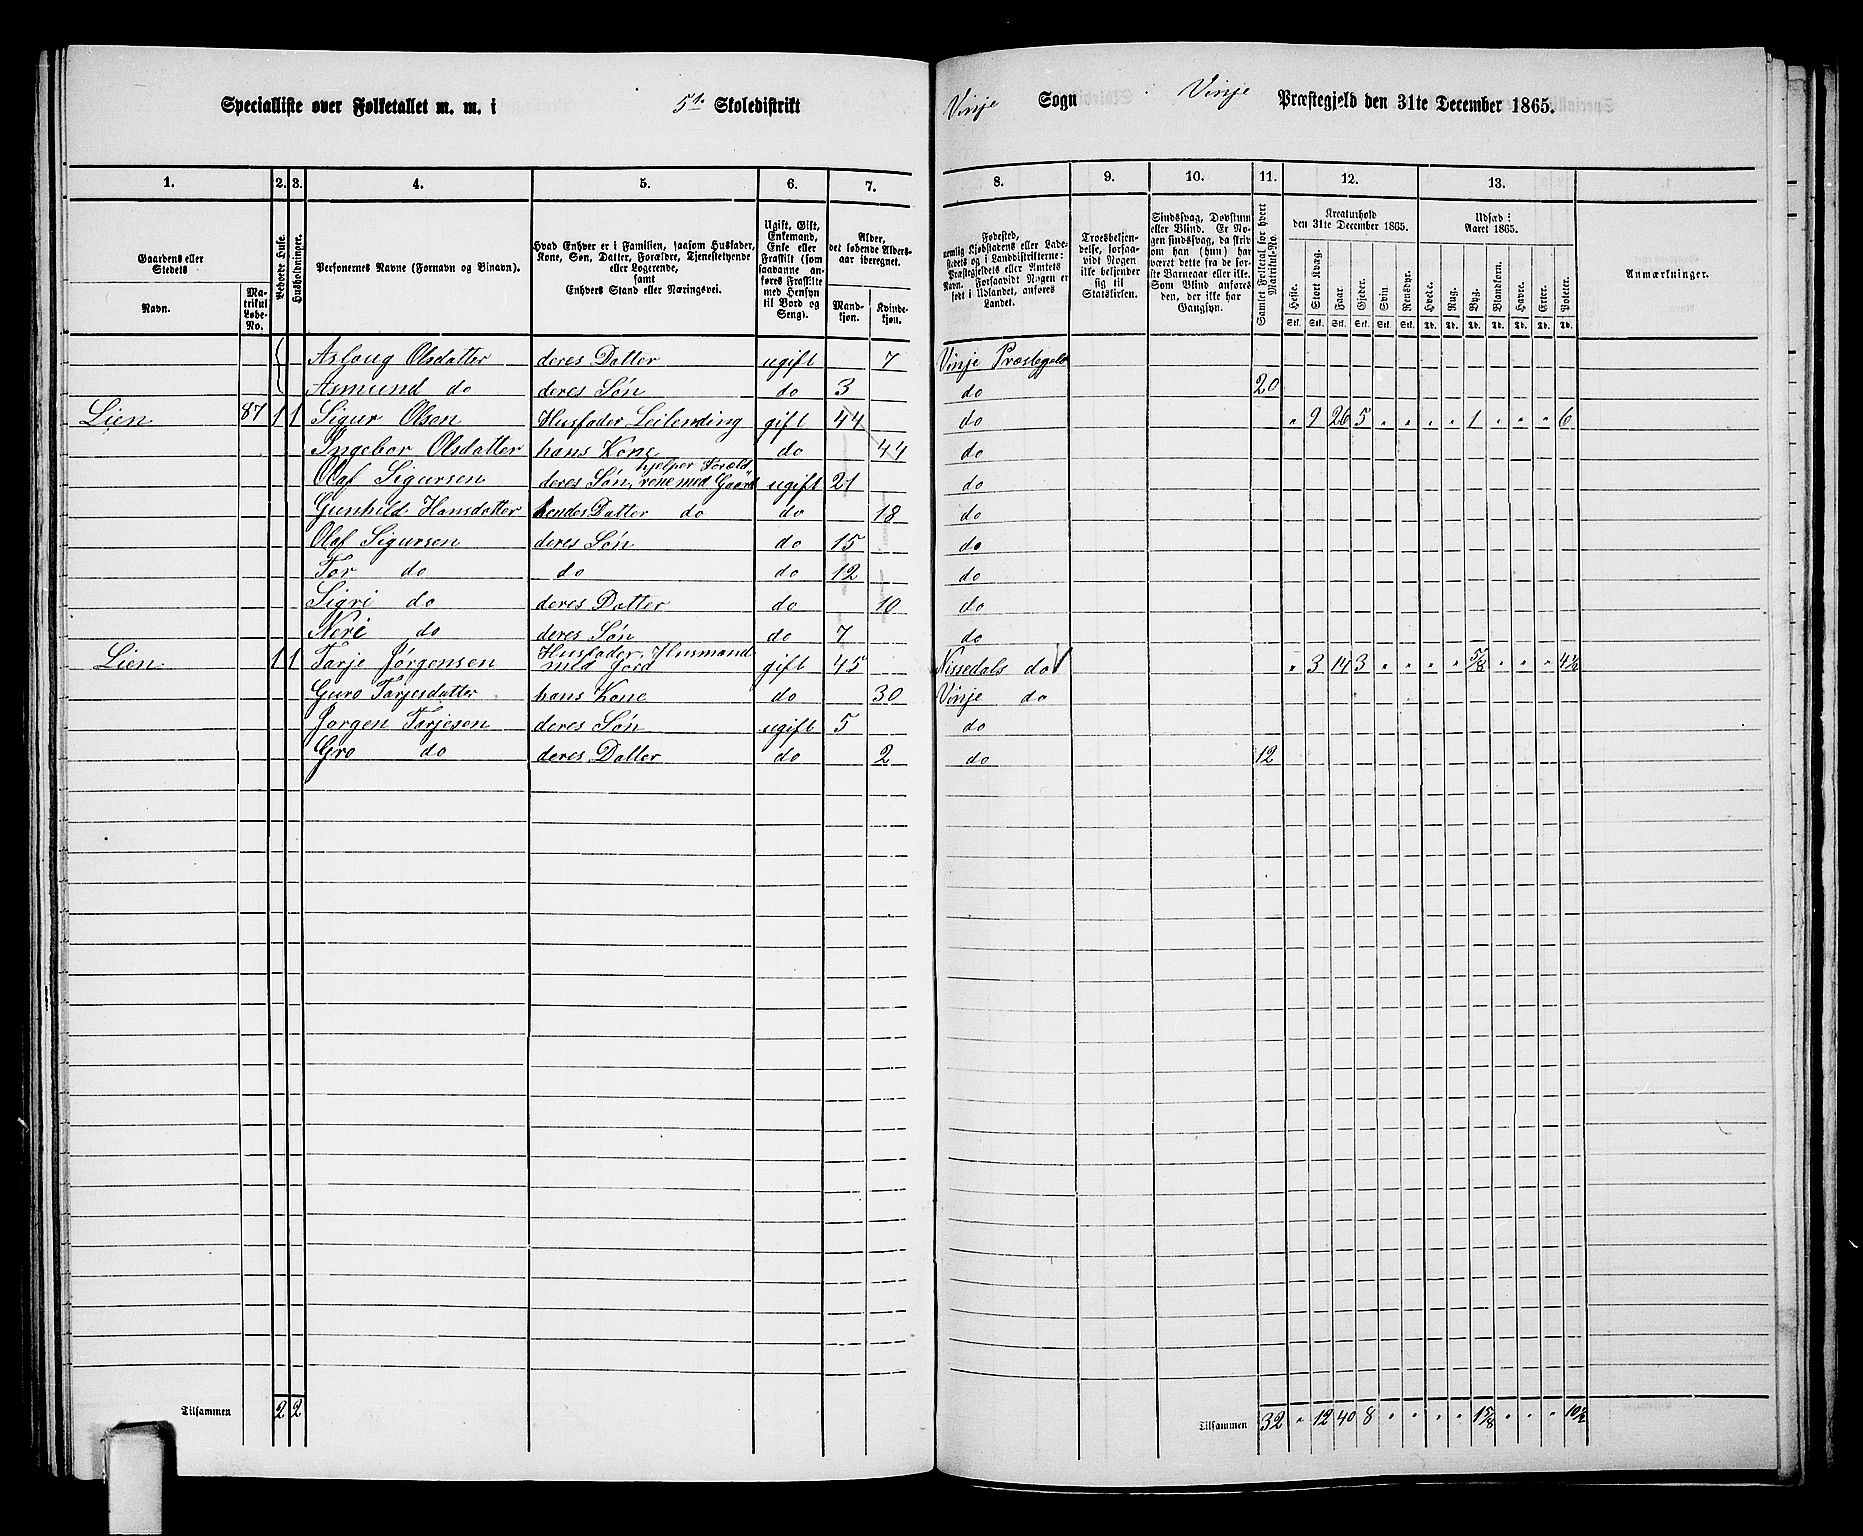 Specialliste over Folketallet m. m. i 5te Skoledistrikt Vinje Sogn i Vinje Præstegjeld den 31te December 1865.
1. 2. 3. 4. 5. 6. 7. 8. 9. 10. 11. 12. 13.
Gaardens eller Stedets
Navn. Matrikul Løbe-No.
Beboede Huse.
Husholdninger.
Personernes Navne (Fornavn og Binavn).
Hvad Enhver er i Familien, saasom Husfader, Kone, Søn, Datter, Forældre, Tjenestetyende eller Logerende,
samt
Enhvers Stand eller Næringsvei.
Ugift, Gift, Enkemand, Enke eller Fraskilt (som saadanne anføres Fraskilte med Hensyn til Bord og Seng).
Alder, det løbende Aldersaar iberegnet.
Mandkjøn. Kvindekjøn.
Fødested, nemlig Kjøbstadens eller Ladestedets og i Landdistrikterne: Præstegjeldets eller Amtets Navn. Forsaavidt Nogen er født i Udlandet, anføres Landet.
Troesbekjendelse, forsaavidt Nogen ikke bekjender sig til Statskirken.
Sindssvag, Døvstum eller Blind. Er Nogen sindssvag, da skriv om han (hun) har været dette fra de første Barneaar eller ikke. Som Blind anføres den, der ikke har Gangsyn.
Samlet Folketal for hvert Matrikul-No.
Kreaturhold den 31te December 1865.
Heste. Stort Kvæg. Faar. Gjeder. Svin Rensdyr.
Stk. Stk. Stk. Stk. Stk. Stk.
Udsæd i Aaret 1865.
Hvede. Rug. Byg. Blandkorn. Havre. Erter. Poteter.
Td. Td. Td. Td. Td. Td. Td.
Anmærkninger.
Aslaug Olsdatter deres Datter ugift 7 Vinje Præstegjeld
Asmund do deres Søn do 3 do 20
Lien 87 1 1 Sigur Olsen Husfader Leilending gift 44 do " 9 26 5 " " " " 1 " " " 6
Ingebor Olsdatter hans Kone do 44 do
Olaf Sigursen deres Søn, hjelper Forældrene med Gaard ugift 21 do
Gunhild Hansdatter hendes Datter do do 18 do
Olaf Sigursen deres Søn do 15 do
Tor do do do 12 do
Sigri do deres Datter do 10 do
Neri do deres Søn do 7 do
Lien 1 1 Tarje Jørgensen Husfader, Husmand med Jord gift 45 Nissedals do " 3 14 3 " " " " 5/8 " " " 4 1/2
Guro Tarjesdatter hans Kone do 30 Vinje do
Jørgen Tarjesen deres Søn ugift 5 do
Gro do deres Datter do 2 do 12
Tilsammen 2 2
Tilsammen 32 " 12 40 8 " " " " 1 5/8 " " " 10 1/2